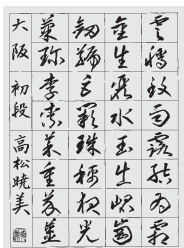 雲騰致雨露結為霜
金生麗水玉出崐岡
劔号巨闕珠称夜光
菓珍李柰菜重芥薑
大阪 初段 高松暁美